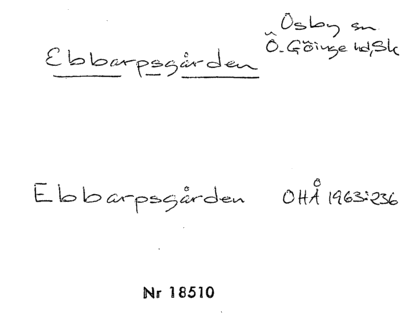 Ebbarpsgården
Osby sn
Ö. Göinge hd, Sk
Ebbarpsgården OHÅ 1963:236
Nr 18510